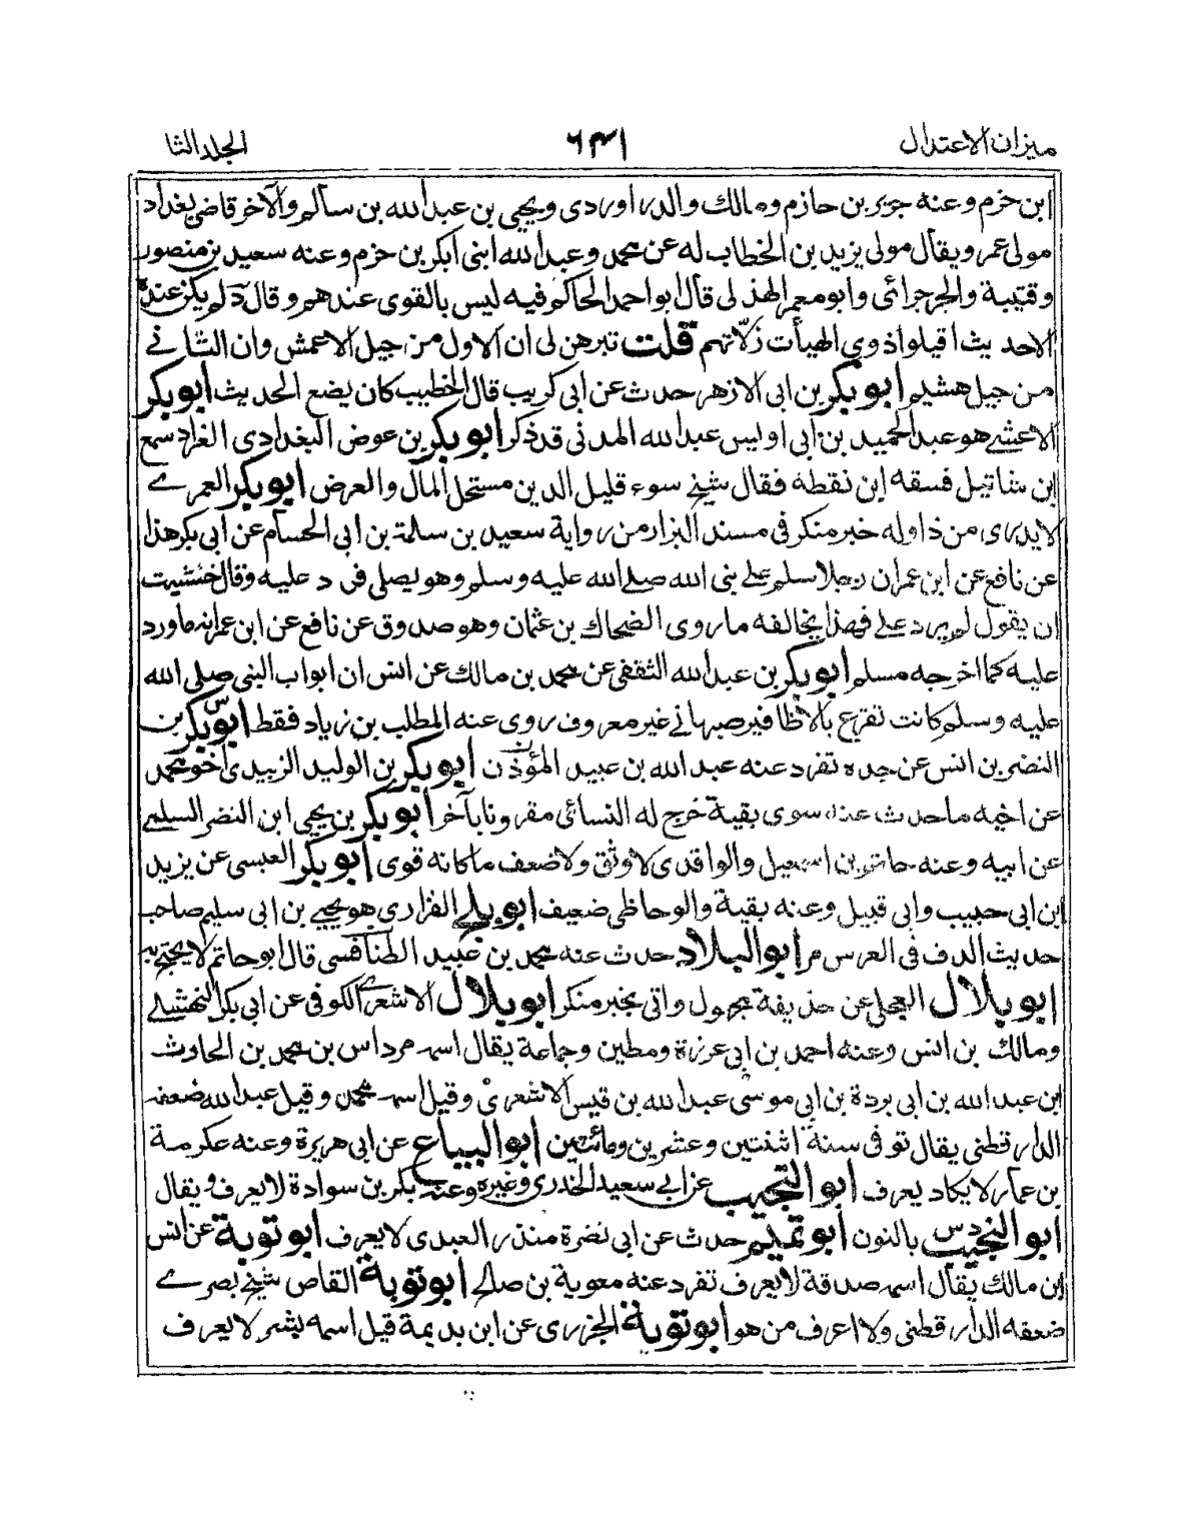 ميزان الاعتدال ٦٣١ الجلد الثا
ابن حزم وعنه جرير بن حازم ومالك والدراوردى ويحيى بن عبد الله بن سالم والآخر قاضى بغداد
مولى عمر ويقال مولى يزيد بن الخطاب له عن محمد وعبد الله ابنى ابكر بن حزم وعنه سعيد بن منصور
وقتيبة والجرجرائى وابو معمر الهذلى قال ابو احمد الحاكم فيه ليس بالقوى عندهم وقال د لم يكن عنده
الاحديث اقيلوا ذوى الهيأت زلاتهم قلت تبرهن لى ان الاول من جيل الاعمش وان الثانے
من جيل هشيم ابو بكر بن ابى الازهر حدث عن ابى كريب قال الخطيب كان يضع الحديث ابو بكر
الاعشے هو عبد الحميد بن ابى اويس عبد الله المدنى قد ذكر ابو بكر بن عوض البغدادى الغراد سمع
ابن شاتيل فسقه ابن نقطة فقال شيخ سوء قليل الدين مستحل المال والعرض ابو بكر العمرے
لا يدرى من ذا وله خبر منكر فى مسند البزار من رواية سعيد بن سلمة بن ابى الحسام عن ابى بكر هذا
عن نافع عن ابن عمر ان رجلا سلم على نبى الله صلے الله عليه وسلم وهو يصلى فرد عليه وقال خشيت
ان يقول لم يرد علے فهذا يخالفه ما روى الضحاك بن عثمان وهو صدوق عن نافع عن ابن عمر انه ما ورد
عليه كما اخرجه مسلم ابو بكر بن عبد الله الثقفى عن محمد بن مالك عن انس ان ابواب النبى صلى الله
عليه وسلم كانت تقرع بالاظافير صبهانے غير معروف روى عنه المطلب بن زياد فقط ابو بكر بن
النضر بن انس عن جده تفرد عنه عبد الله بن عبيد المؤذن ابو بكر بن الوليد الزبيدى اخو محمد
عن اخيه ما حدث عنه سوى بقية خرج له النسائى مقرونا بآخر ابو بكر بن يحيى ابن النضر السلمے
عن ابيه وعنه حاتم بن اسمعيل والواقدى لا وثق ولا ضعف ما كانه قوى ابو بكر العبسى عن يزيد
ابن ابى حبيب وابى قبيل وعنه بقية والوحاظى ضعيف ابو بلج الفزارى هو يحيے بن ابى سليم صاحب
حديث الدف فى العرس مر ابو البلاد حدث عنه محمد بن عبيد الطنافسى قال ابو حاتم لا يحتج به
ابو بلال العجلى عن حذيفة مجهول واتى بخبر منكر ابو بلال الاشعرے الكوفى عن ابى بكر النهشلے
ومالك بن انس وعنه احمد بن ابى غرزة ومطين وجماعة يقال اسمه مرداس بن محمد بن الحاوث
ابن عبد الله بن ابى بردة بن ابى موسى عبد الله بن قيس الاشعرى وقيل اسمه محمد وقيل عبد الله ضعفه
الدارقطنى يقال توفى سنة اثنتين وعشرين ومائتين ابو البياع عن ابى هريرة وعنه عكرمة
بن عمار لا يكاد يعرف ابو التجيب عن ابى سعيد الخدرى وغيره وعنه بكر بن سوادة لا يعرف ويقال
ابو النجيب بالنون ابو تميم حدث عن ابى نضرة منذر العبدى لا يعرف ابو توبة عن انس
ابن مالك يقال اسمه صدقة لا يعرف تفرد عنه معوية بن صالح ابو توبة القاص شيخ بصرے
ضعفه الدارقطنى ولا اعرف من هو ابو توبة الجزرى عن ابن بديمة قيل اسمه بشر لا يعرف